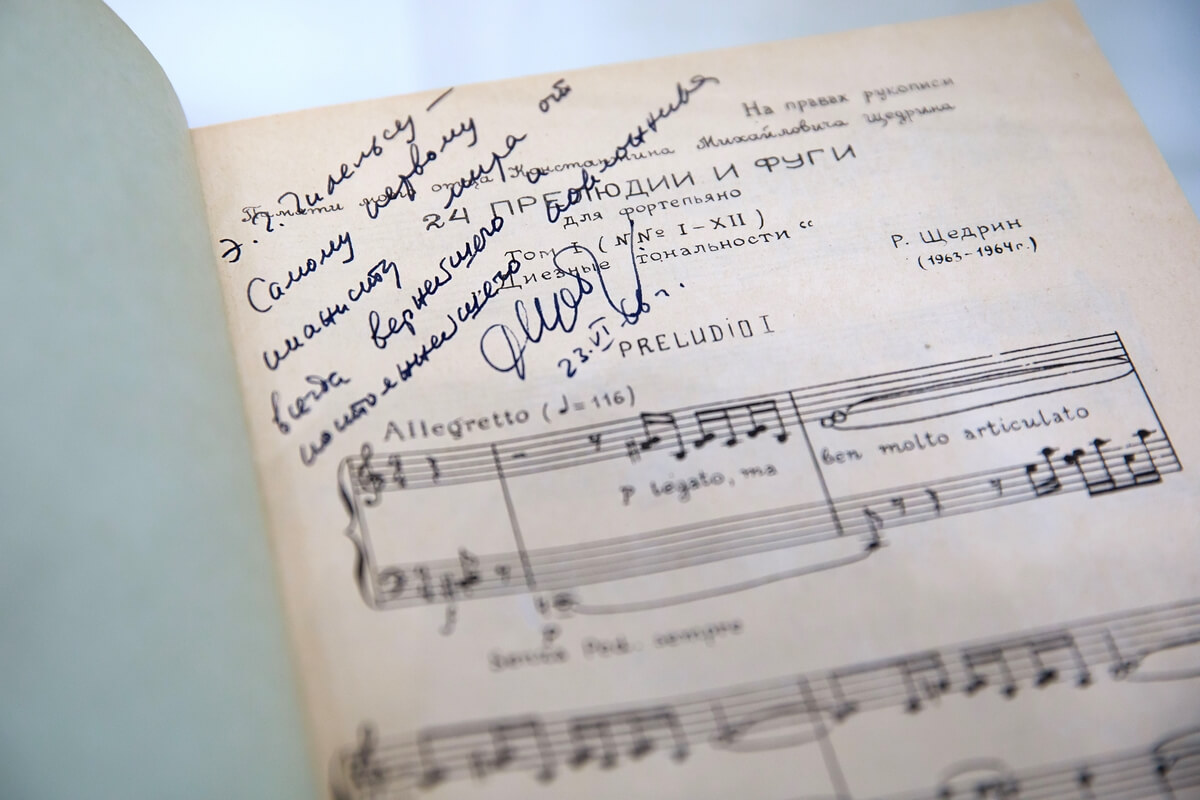 На правах рукописи
Памяти моего отца Константина Михайловича Щедрина
24 ПРЕЛЮДИИ И ФУГИ
для фортепьяно
Том I (N№ I-XII)
Диезные тональности "
Р. Щедрин
(1963-1964г.)
Э. Г. Гилельсу –
Самому первому
пианисту мира от
всегда вернейшего
поклонника
23.VI 66 г.
PRELUDIO I
Allegretto (♩=116)
p legato, ma
ben molto articulato
p
Senza Ped. sempre